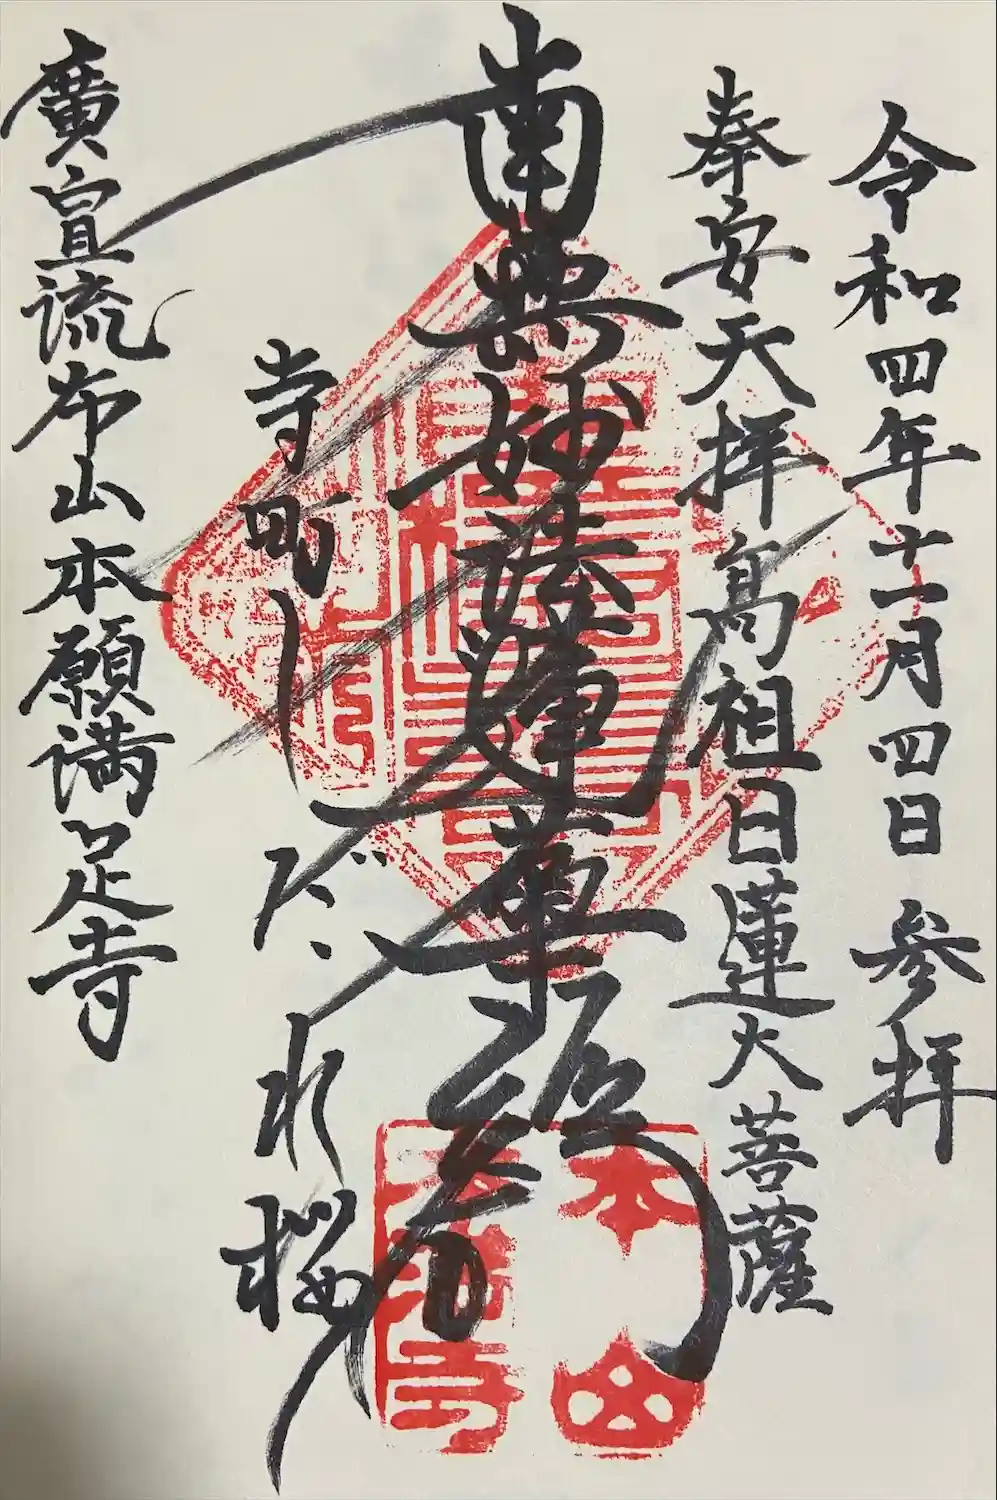 令和四年十一月四日 参拝
奉安天拝高祖日蓮大菩薩
南無妙法蓮華経
寺町しだれ桜
廣宣流布山本願満足寺
本山